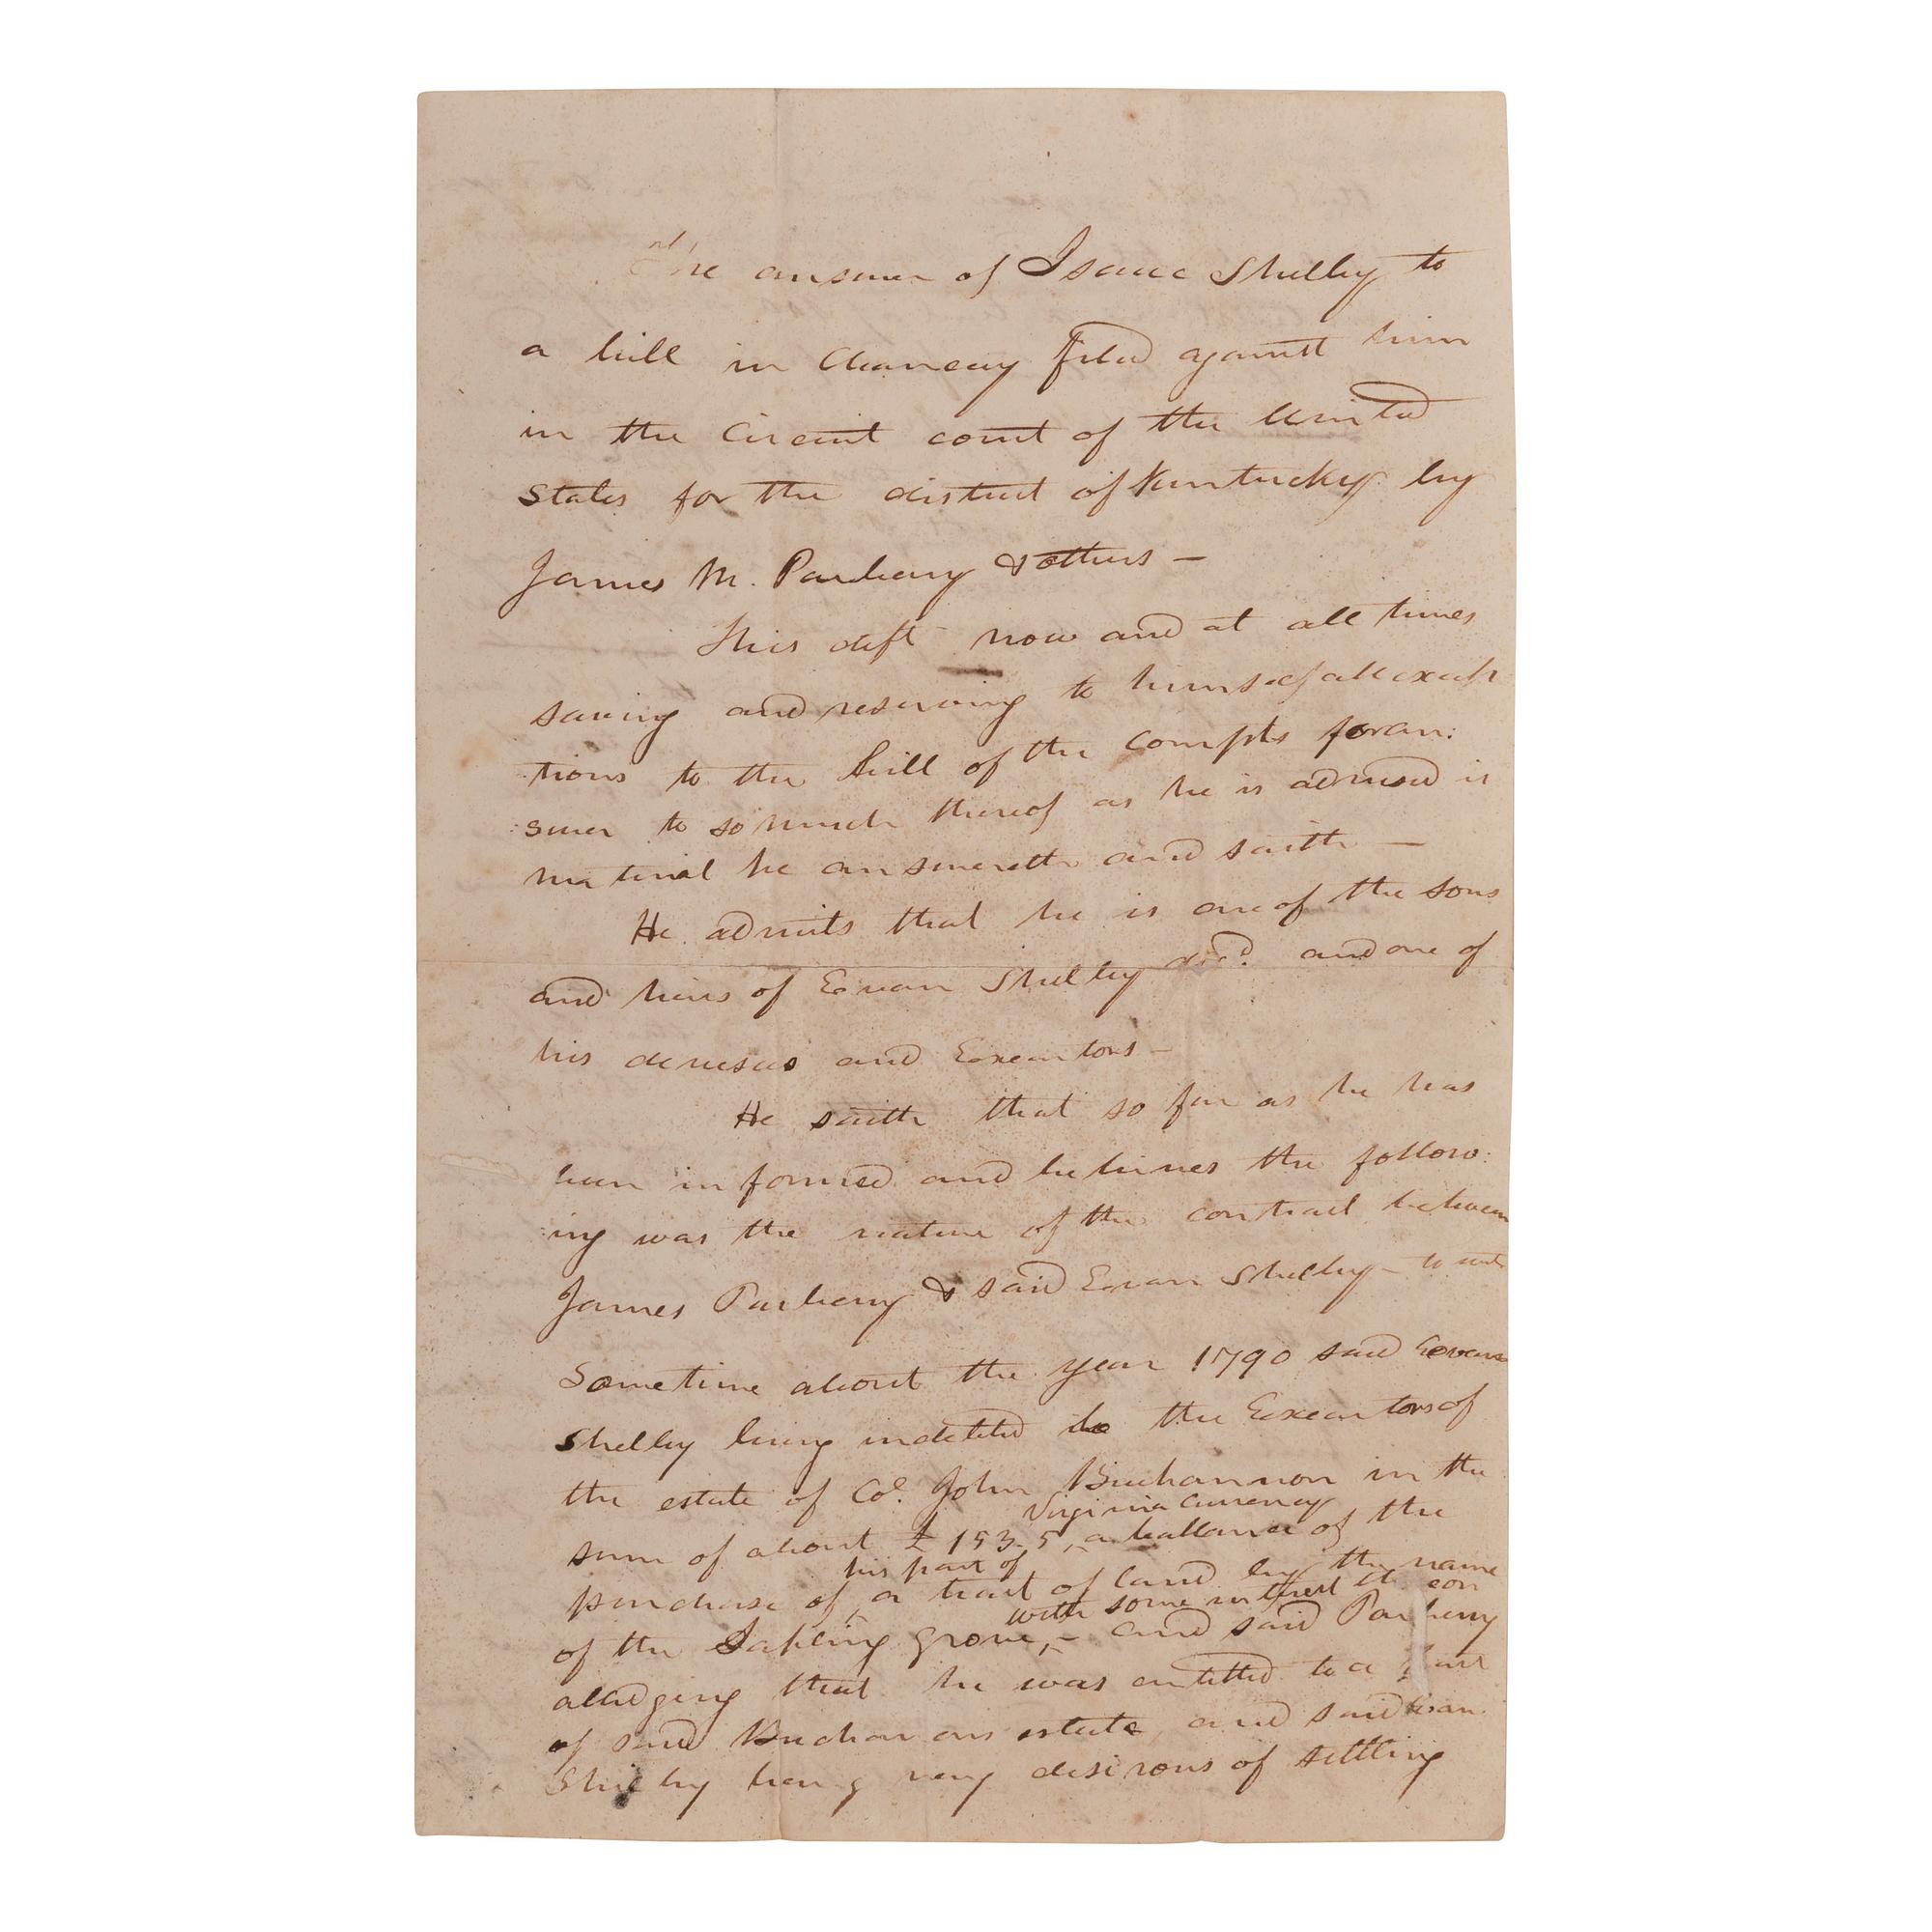 The answer of Isaac Shelby to
a bill in Chancery filed against him
in the Circuit court of the United
States for the district of Kentucky by
James M. Parberry & others —
This deft now and at all times
saving and reserving to himself all excep
tions to the bill of the Complts for an:
:swer to so much thereof as he is advised is
material he answereth and saith —
He admits that he is one of the sons
and heirs of Evan Shelby decd. and one of
his devisees and Executors —
He saith that so far as he has
been informed and believes the follow:
:ing was the nature of the contract between
James Parberry & said Evan Shelby — to wit
Sometime about the year 1790 said Evan
Shelby being indebted to the Executors of
the estate of Col. John Buchannon in the
Virginia Currency
sum of about £ 153. 5, a ballance of the
his part of
purchase of a tract of land by the name
with some interest
of the Sapling grove, — and said Parberry
alledging that he was entitled to a part
of said Buchanons estate, and said Evan
Shelby being very desirous of settling